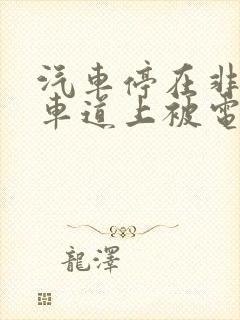 汽車停在非
車道上被電
龍澤